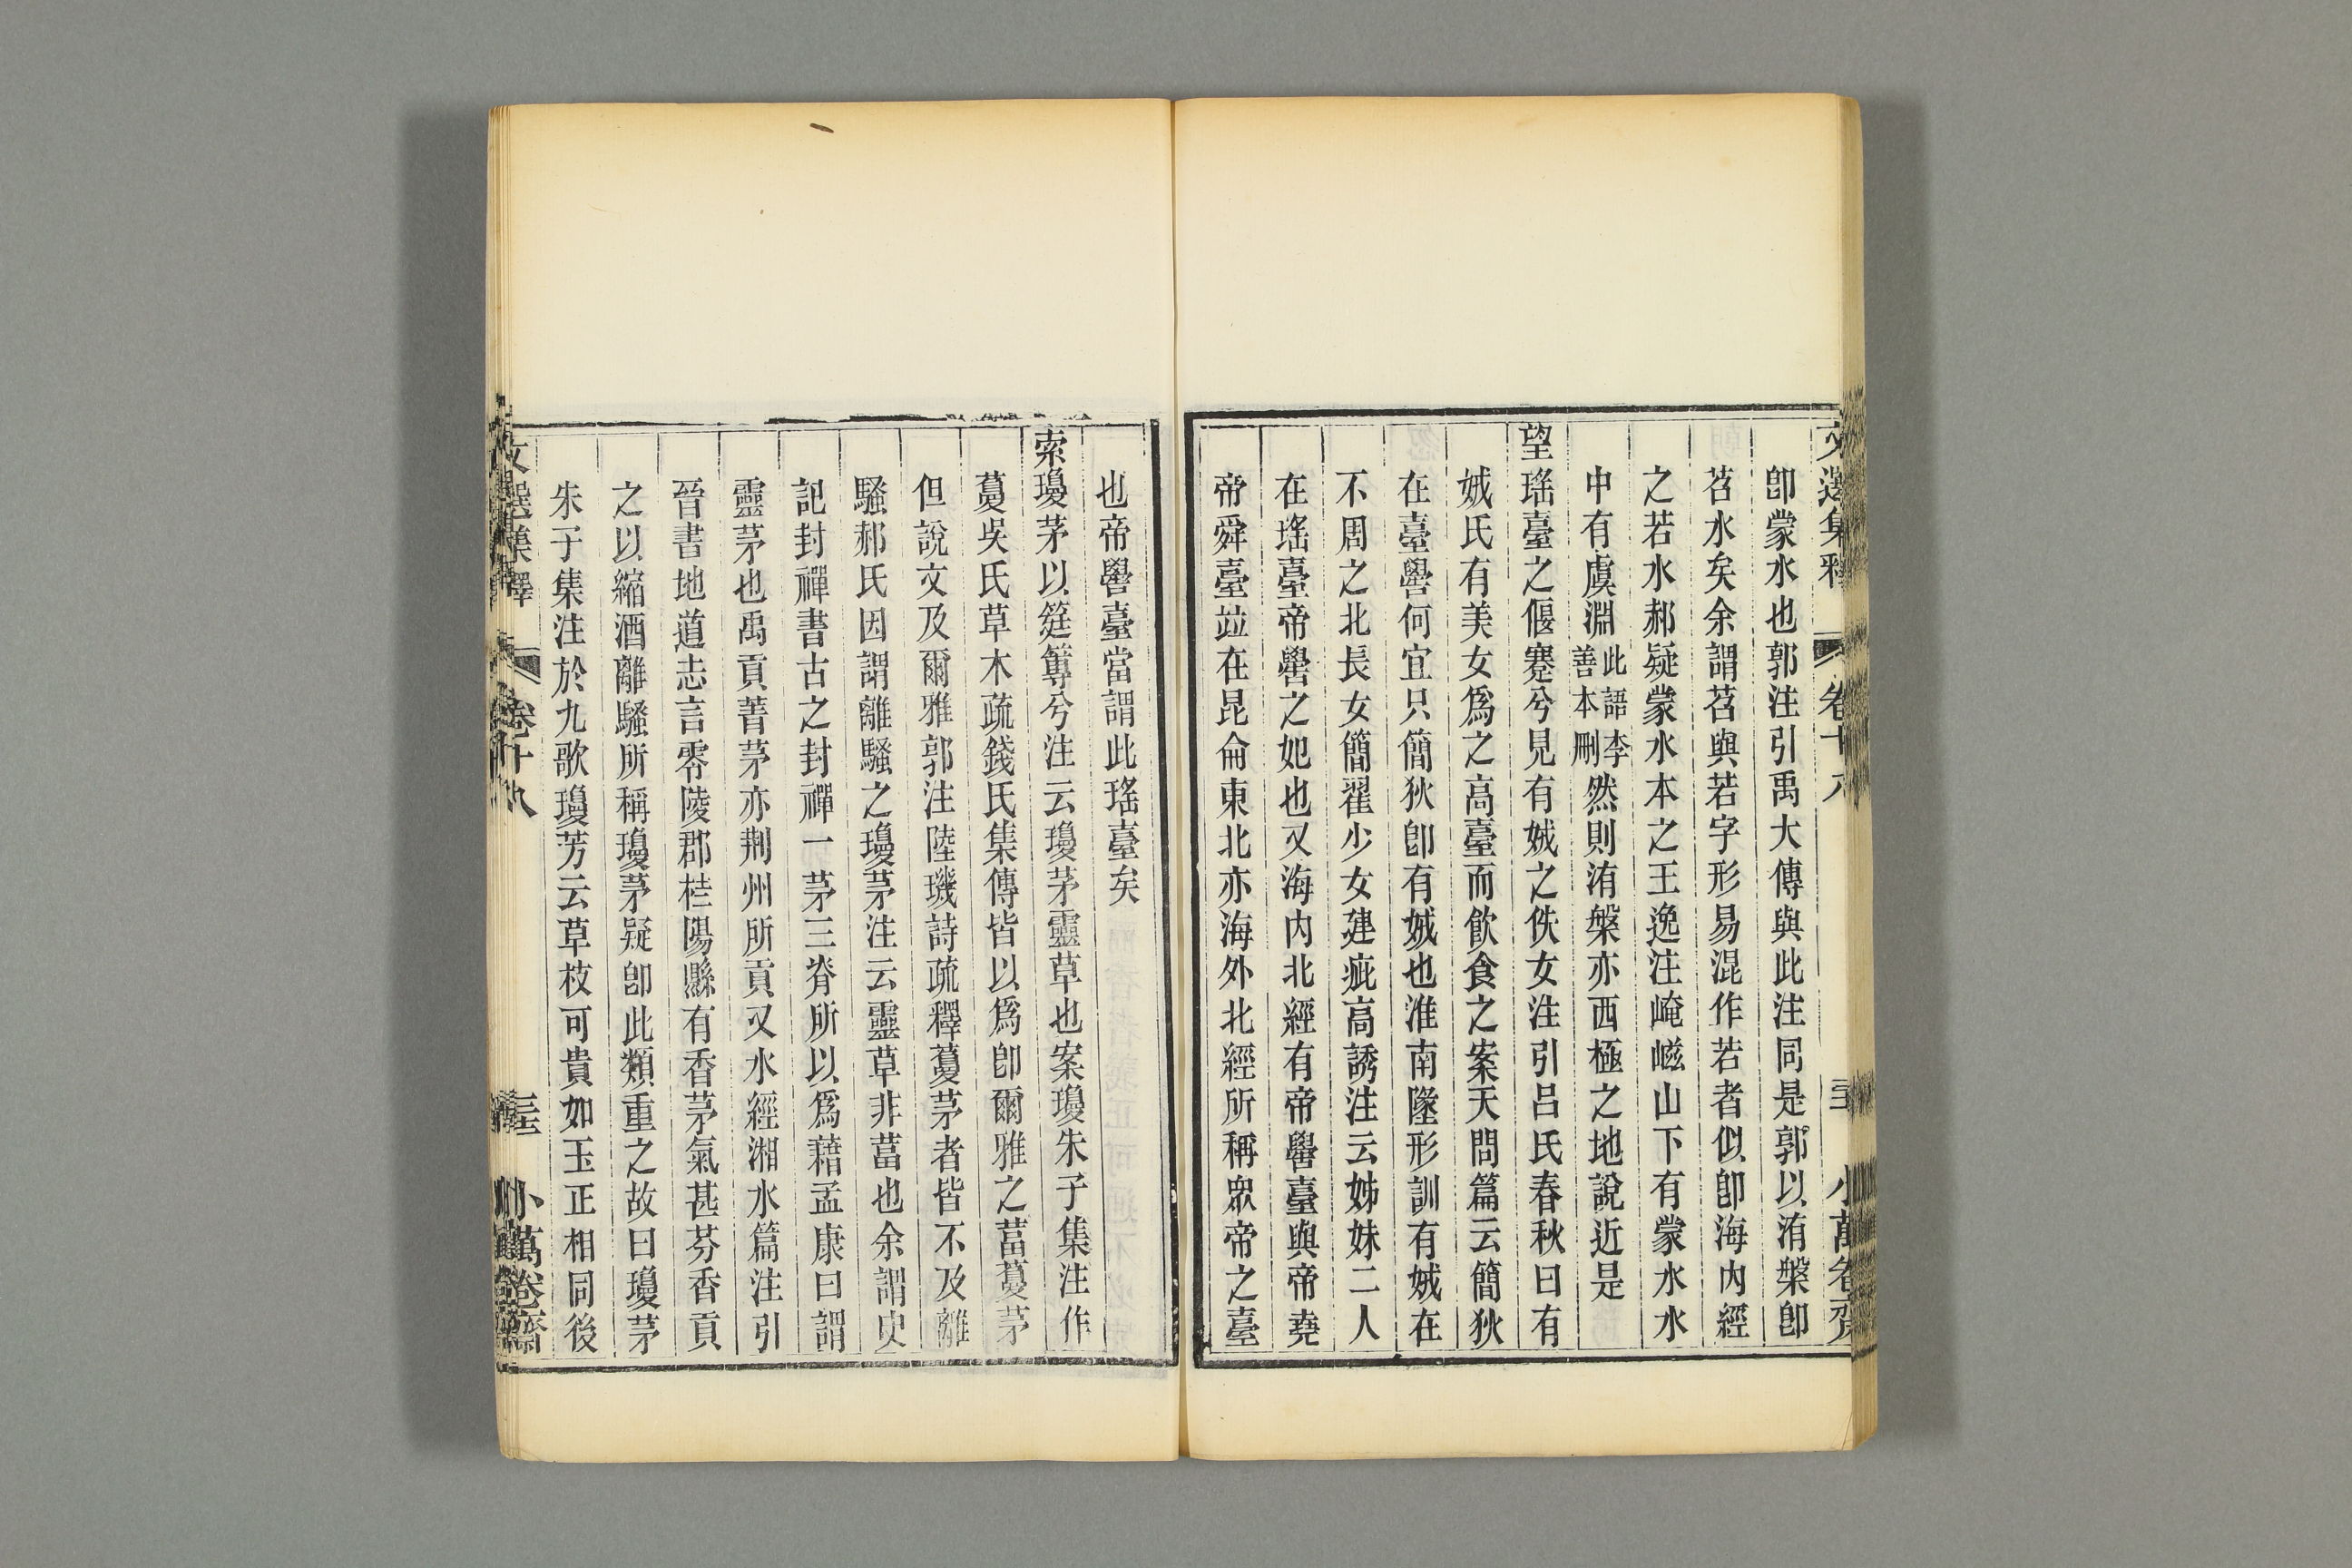 卽蒙水也郭注引禹大傳與此注同是郭以洧槃卽
茗水矣余謂茗與若字形易混作若者似卽海內經
之若水郝疑蒙水本之王逸注崦嵫山下有蒙水水
中有虞淵此語李善本刪然則洧槃亦西極之地說近是
望瑤臺之偃蹇兮見有娀之佚女注引呂氏春秋曰有
娀氏有美女爲之高臺而飮食之案天問篇云簡狄
在臺嚳何宜只簡狄卽有娀也淮南墬形訓有娀在
不周之北長女簡翟少女建疵高誘注云姊妹二人
在瑤臺帝嚳之妃也又海內北經有帝嚳臺與帝堯
帝舜臺竝在昆侖東北亦海外北經所稱衆帝之臺
也帝嚳臺當謂此瑤臺矣
索瓊茅以筳篿兮注云瓊茅靈草也案瓊朱子集注作
藑吳氏草木疏錢氏集傳皆以爲卽爾雅之葍藑茅
但說文及爾雅郭注陸璣詩疏釋藑茅者皆不及離
騷郝氏因謂離騷之瓊茅注云靈草非葍也余謂史
記封禪書古之封禪一茅三脊所以爲藉孟康曰謂
靈茅也禹貢菁茅亦荆州所貢又水經湘水篇注引
晉書地道志言零陵郡桂陽縣有香茅氣甚芬香貢
之以縮酒離騷所稱瓊茅疑卽此類重之故曰瓊茅
朱子集注於九歌瓊芳云草枝可貴如玉正相同後
文選集釋 卷十八 小萬卷齋